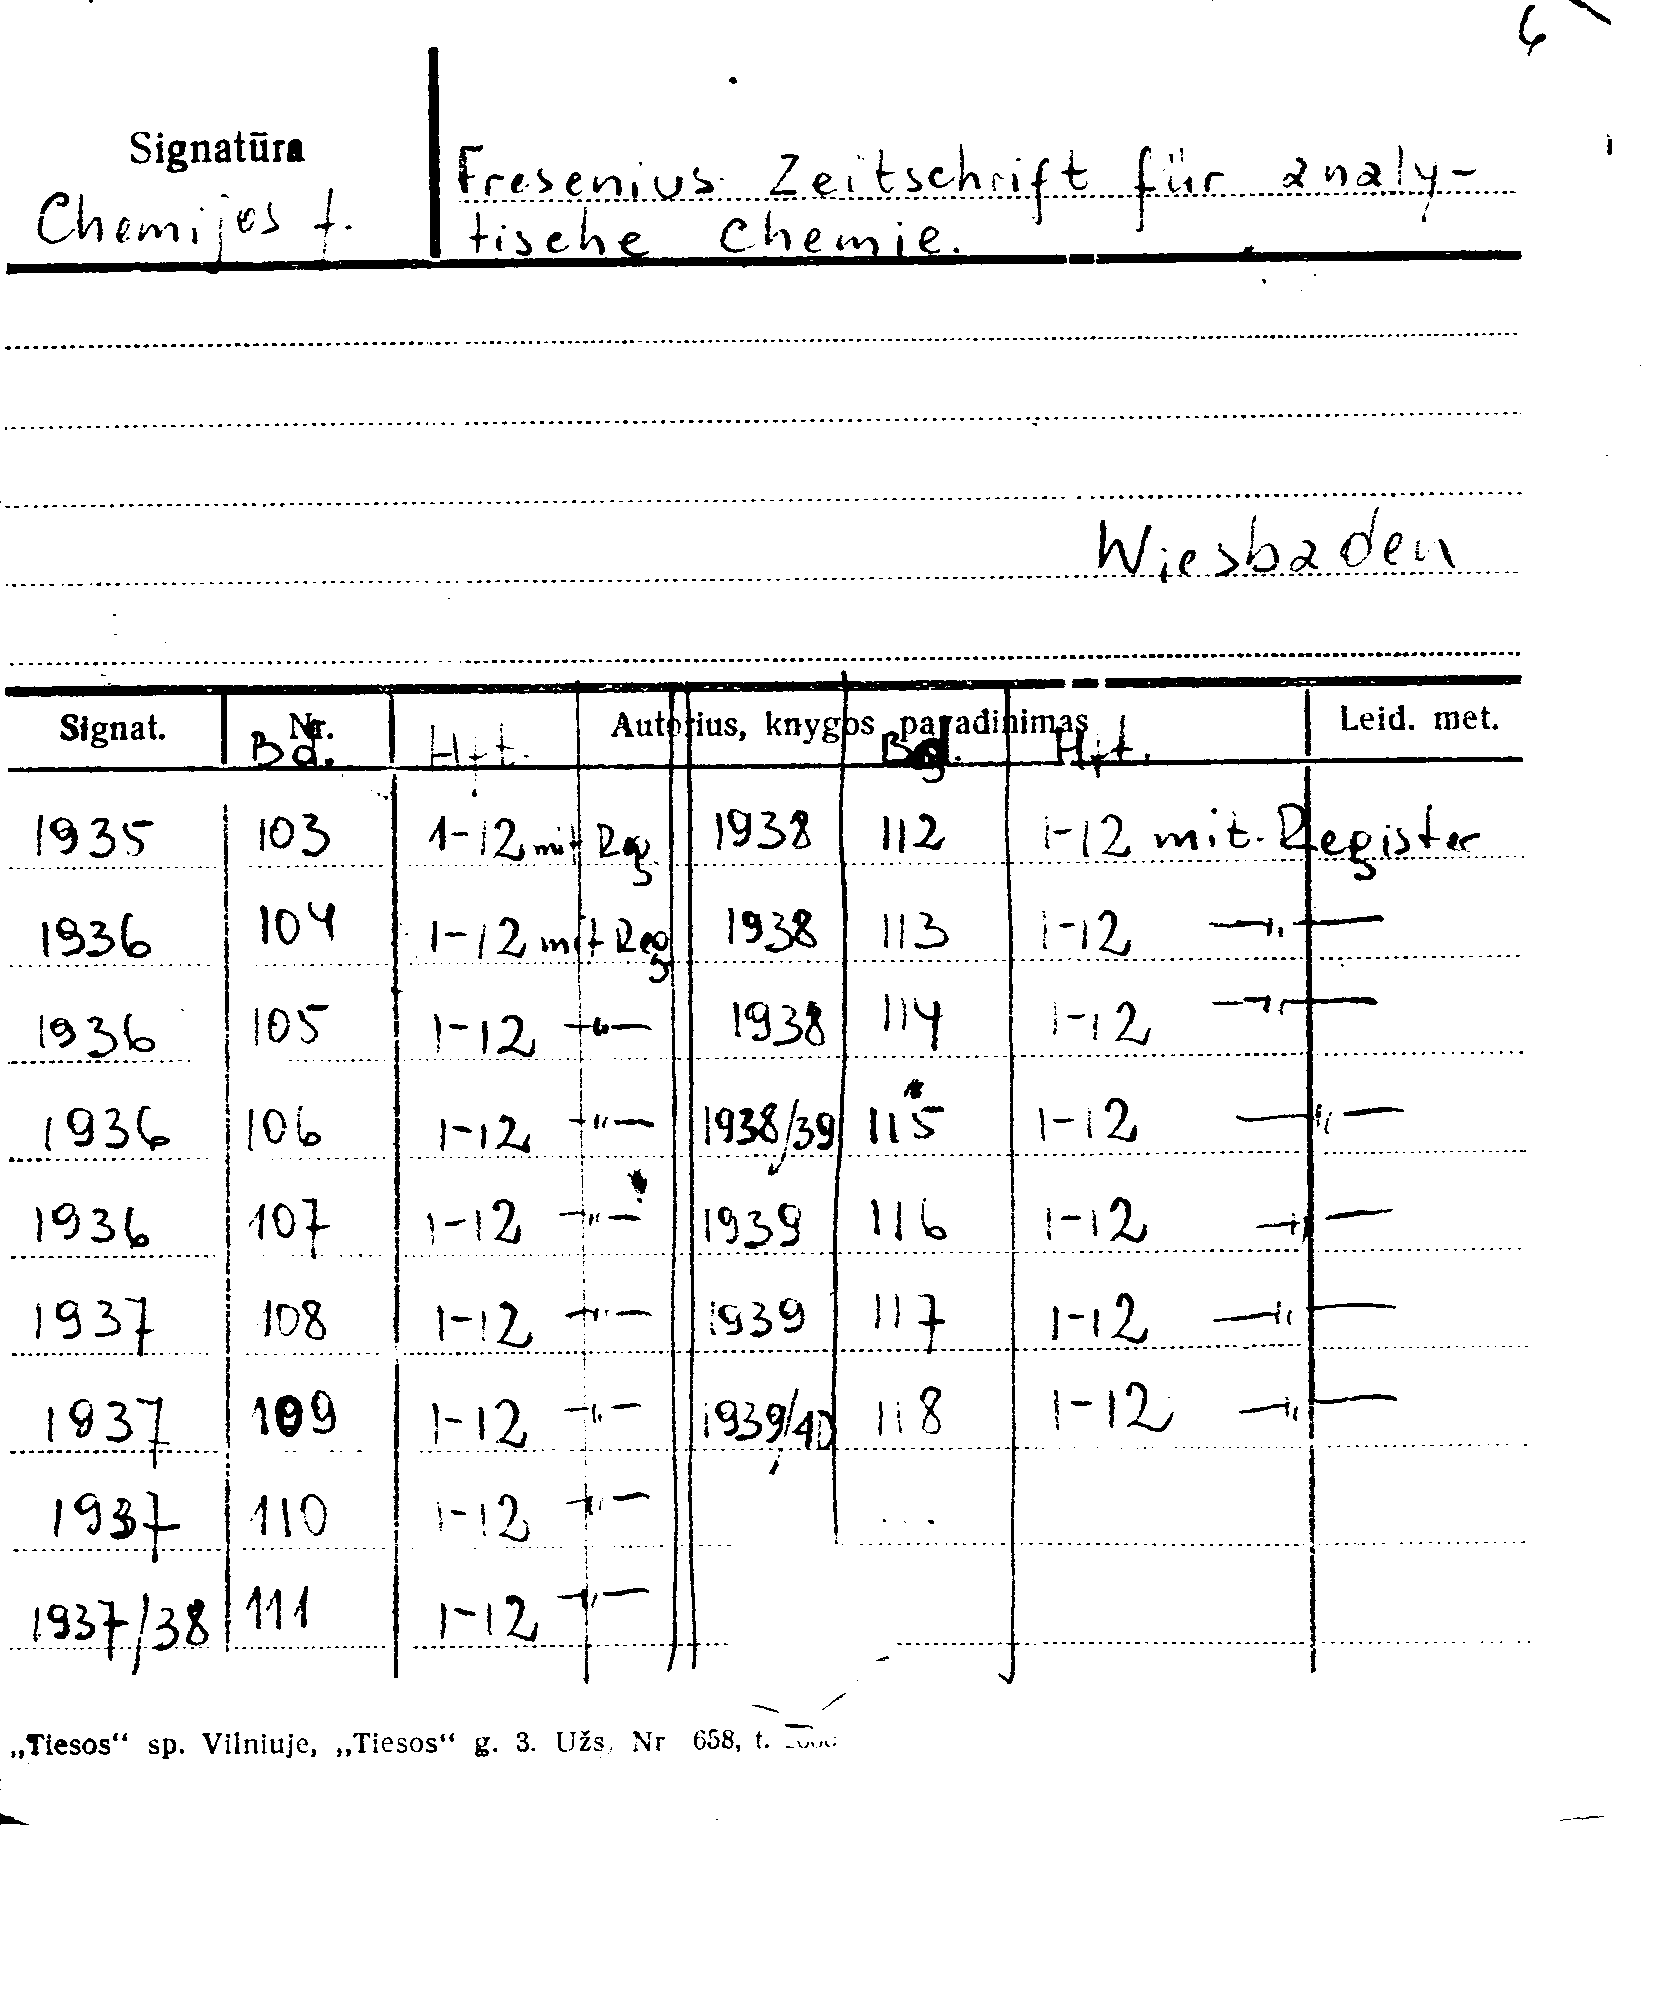 6
Signatūra
Chemijos f.
Fresenius Zeitschrift für analy-
tische Chemie.
Wiesbaden
Signat. Nr. Autorius, knygos pavadinimas Leid. met.
Bd. Hft. Bd. Hft.
1935 103 1-12 mit Reg 1938 112 1-12 mit. Register
1936 104 1-12 mit Reg 1938 113 1-12 —〃—
1936 105 1-12 —〃— 1938 114 1-12 —〃—
1936 106 1-12 —〃— 1938/39 115 1-12 —〃—
1936 107 1-12 —〃— 1939 116 1-12 —〃—
1937 108 1-12 —〃— 1939 117 1-12 —〃—
1937 109 1-12 —〃— 1939/40 118 1-12 —〃—
1937 110 1-12 —〃—
1937/38 111 1-12 —〃—
„Tiesos“ sp. Vilniuje, „Tiesos“ g. 3. Užs. Nr 658, t.